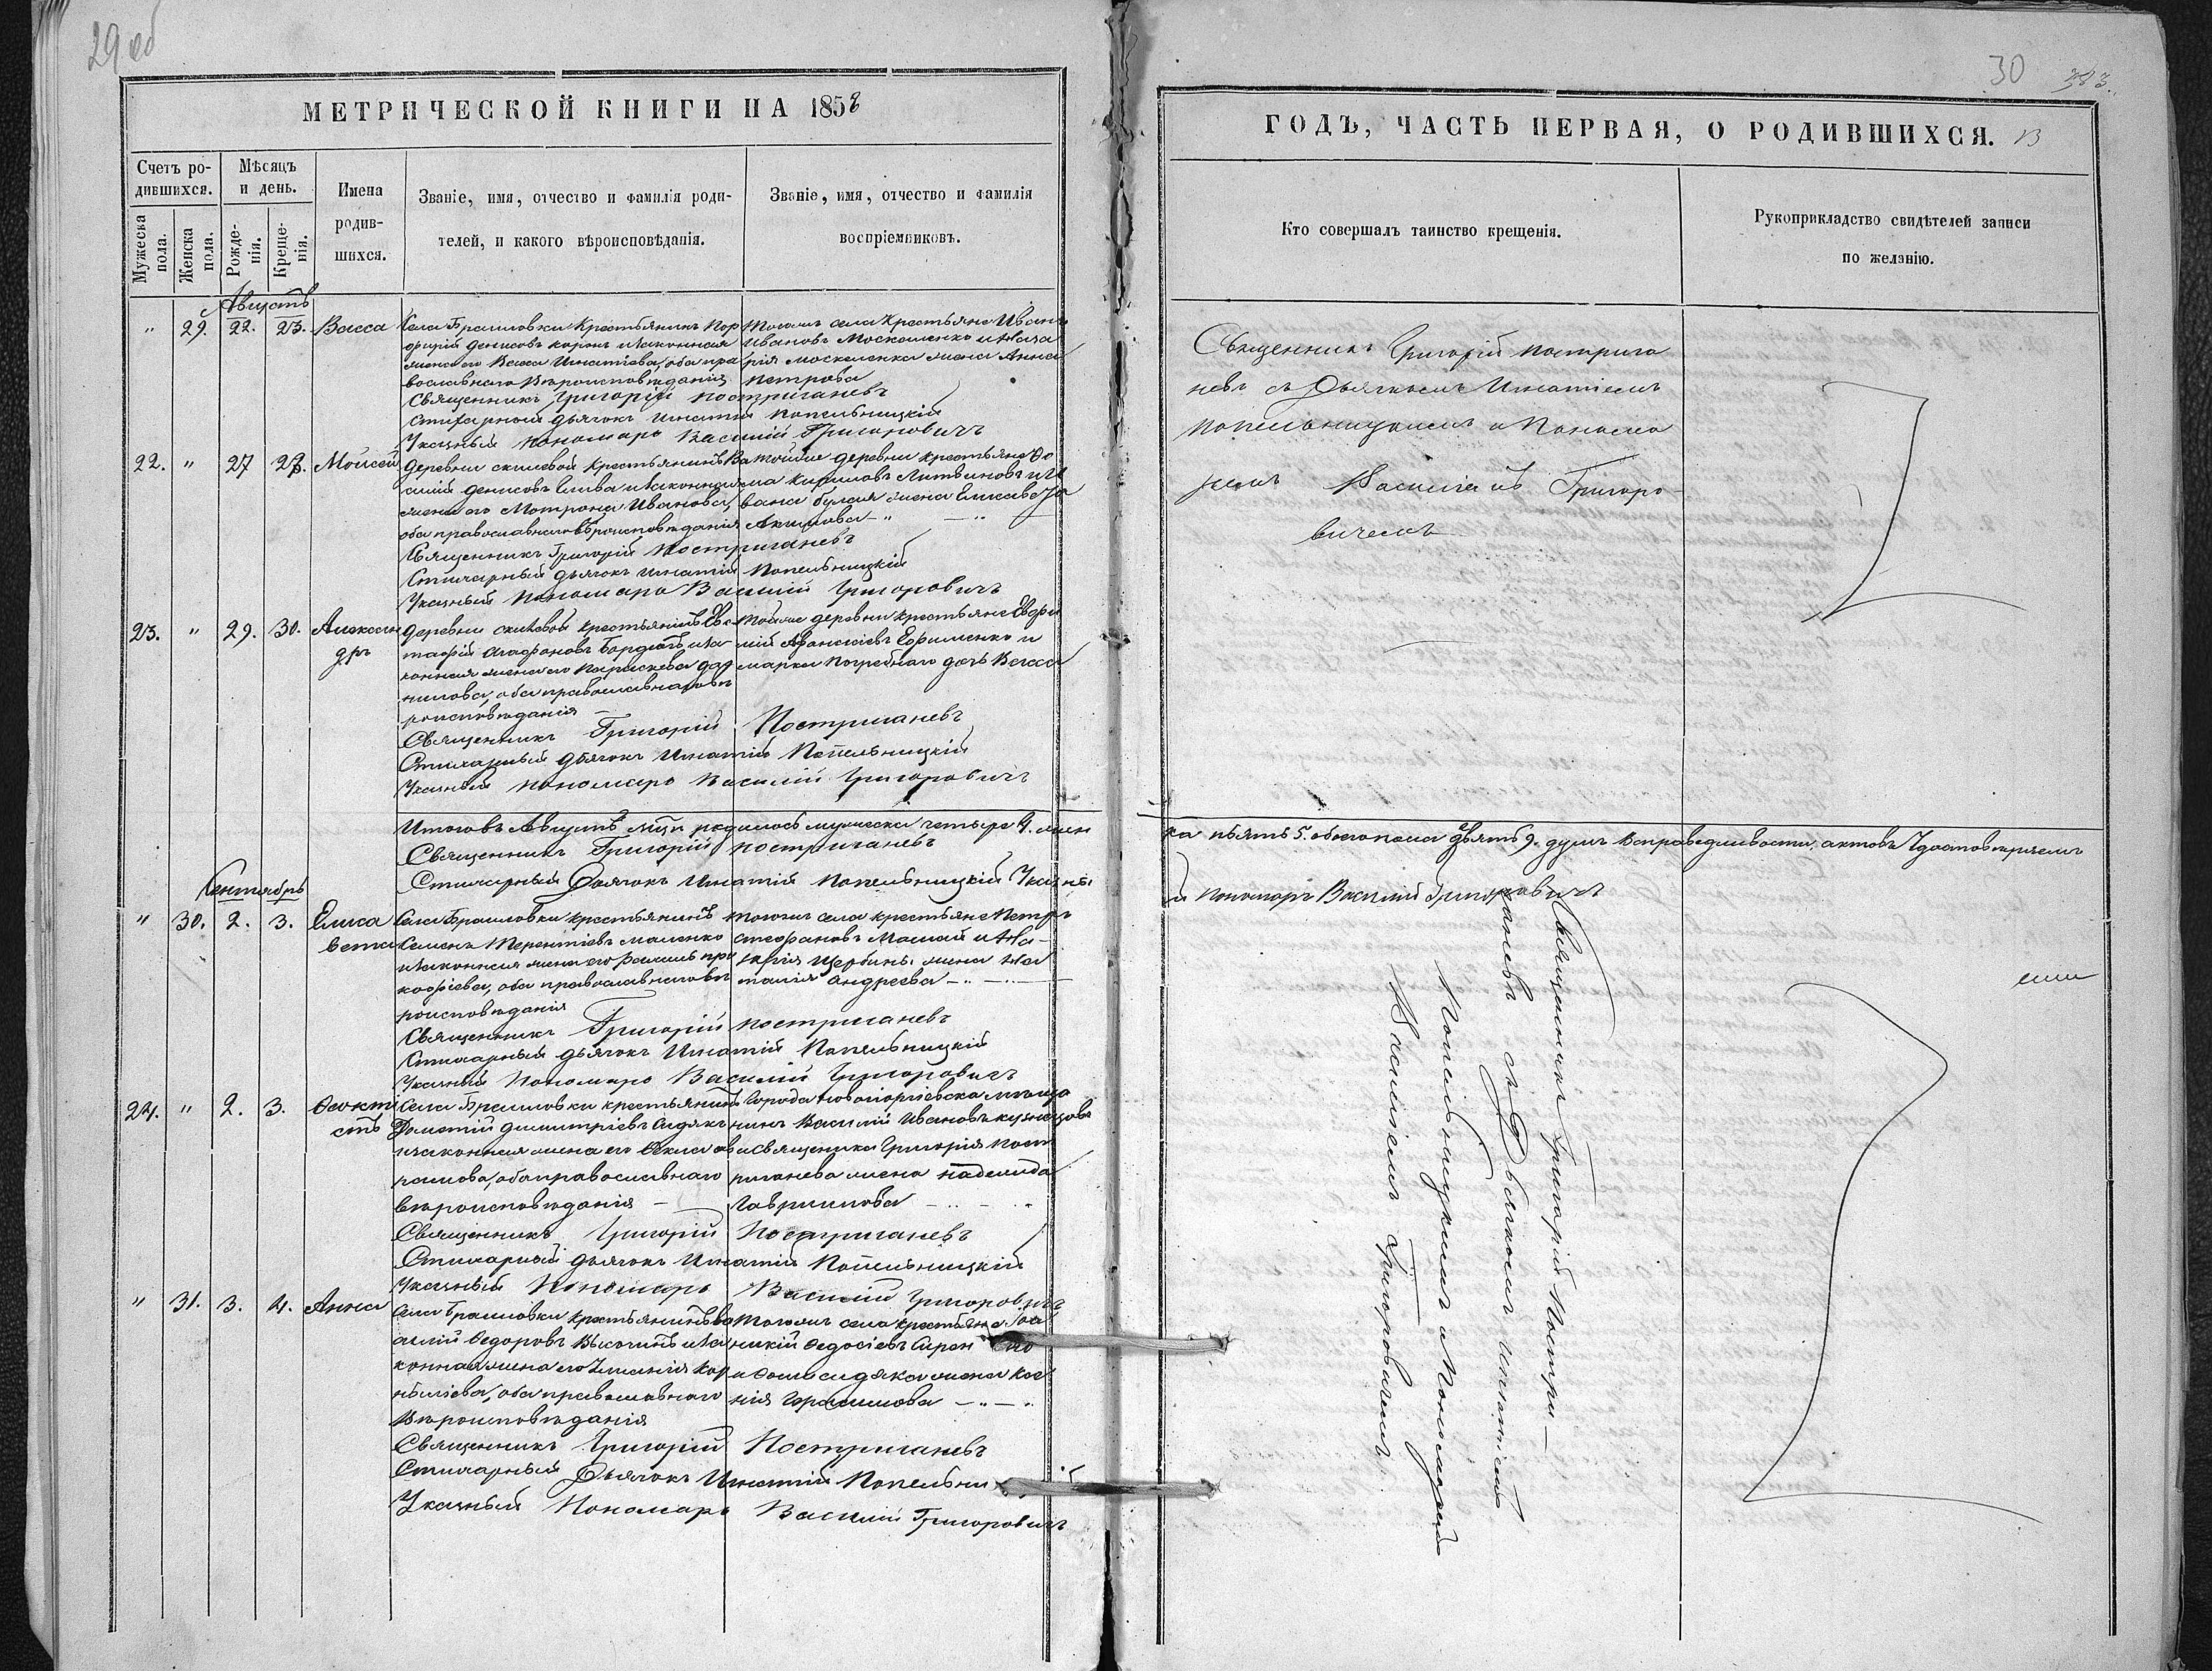 29 об
МЕТРИЧЕСКОЙ КНИГИ НА 1858
Счетъ ро-
дившихся.
Мѣсяцъ
и день.
Мужеска
пола.
Женска
пола.
Рожде-
нія.
Креще-
нія.
Имена
родив-
шихся.
Званіе, имя, отчество и фамилія роди-
телей, и какого вѣроисповѣданія.
Званіе, имя, отчество и фамилія
воспріемниковъ.
Августъ
" 29. 22. 23. Васса
Села Браиловки Крестьянинъ Пор
фирій Денисовъ и законная
жена его Васса Игнатіева, оба пра
вославнаго Вѣроисповѣданія
Тогожъ села Крестьяне Иванъ
Ивановъ Москаленко и Заха
рія Москаленка жена Анна
Петрова
Священникъ Григорій Постригачевъ
Стихарный дьячокъ Игнатій Попельницкій
Указный пономарь Василій Григоровичъ
22. " 27 28. Мойсей
Деревни крестьянинъ Ва
силій Денисовъ и законная
жена его Мотрона Иванова,
оба православнаго вѣроисповѣданія
Тойже деревни крестьяне Ѳо
ма Кириловъ Литвиновъ и И
вана жена Елисавета
Акимова - " - " -
Священникъ Григорій Постригачевъ
Стихарный дьячокъ Игнатій Попельницкій
Указный пономарь Василій Григоровичъ
23. " 29. 30. Александ
ръ
Деревни крестьянинъ Евс
тафій Агафоновъ и за
конная жена его Параскева Да
нилова, оба православнаго вѣ
роисповѣданія
Тойже деревни крестьяне Евфи
мій Афанасіевъ Ефименко и
Марка Погребнаго дочь Васса
Священникъ Григорій Постригачевъ
Стихарный дьячокъ Игнатій Попельницкій
Указный пономарь Василій Григоровичъ
Итого въ Августѣ м̃цѣ родилось мужеска четыре 4. жен
Священникъ Григорій Постригачевъ
Стихарный Дьячокъ Игнатій Попельницкій Указны
Сентябрь
" 30. 2. 3. Елиса
вета
Села Браиловки крестьянинъ
Семенъ Терентіевъ Маленко
и законная жена его про
кофіева, оба православнаго вѣ
роисповѣданія
Тогожъ села крестьяне Петръ
Стефановъ и За
харія Щербины жена На
талія Андреева - " - " -
Священникъ Григорій Постригачевъ
Стихарный дьячокъ Игнатій Попельницкій
Указный Пономарь Василій Григоровичъ
24. " 2. 3. Ѳеокти
стъ
Села Браиловки крестьянинъ
Дометій Димитріевъ Сидяк
и законная жена его Ѳекла
оба православнаго
вѣроисповѣданія
Города Новогеоргіевска мѣща
нинъ Василій Ивановъ Кузнецовъ
и Священника Григорія Пост
ригачева жена Надежда
Гавриилова
Священникъ Григорій Постригачевъ
Стихарный дьячокъ Игнатій Попельницкій
Указный Пономарь Василій Григоровичъ
" 31. 3. 4. Анна
Села Браиловки крестьянинъ Ва
силій Ѳедоровъ и за
конная жена его Кор
нѣліева, оба православнаго
Вѣроисповѣданія
Тогожъ села крестьяне
Ѳедосіевъ
и Ѳомы Сидяка жена Ксе
нія Герасимова - " - "
Священникъ Григорій Постригачевъ
Стихарный Дьячокъ Игнатій Попельни
Указный Пономарь Василій Григоровичъ
30
ГОДЪ, ЧАСТЬ ПЕРВАЯ, О РОДИВШИХСЯ. 13
Кто совершалъ таинство крещенія.
Рукоприкладство свидѣтелей записи
по желанію.
Священникъ Григорій Постригa
чевъ съ Дьячкомъ Игнатіемъ
Попельницкимъ и Понома
ремъ Василіемъ Григоро-
вичемъ
ка пьять 5. обоего пола девять 9. душъ В справедливости актовъ Удостовѣряемъ
й Пономарь Василий Григоровичъ
Священникъ Григорій Постри-
гачевъ съ Дьячкомъ Игнатіемъ
Попельницкимъ и Пономаремъ
Василіемъ Григоровичемъ